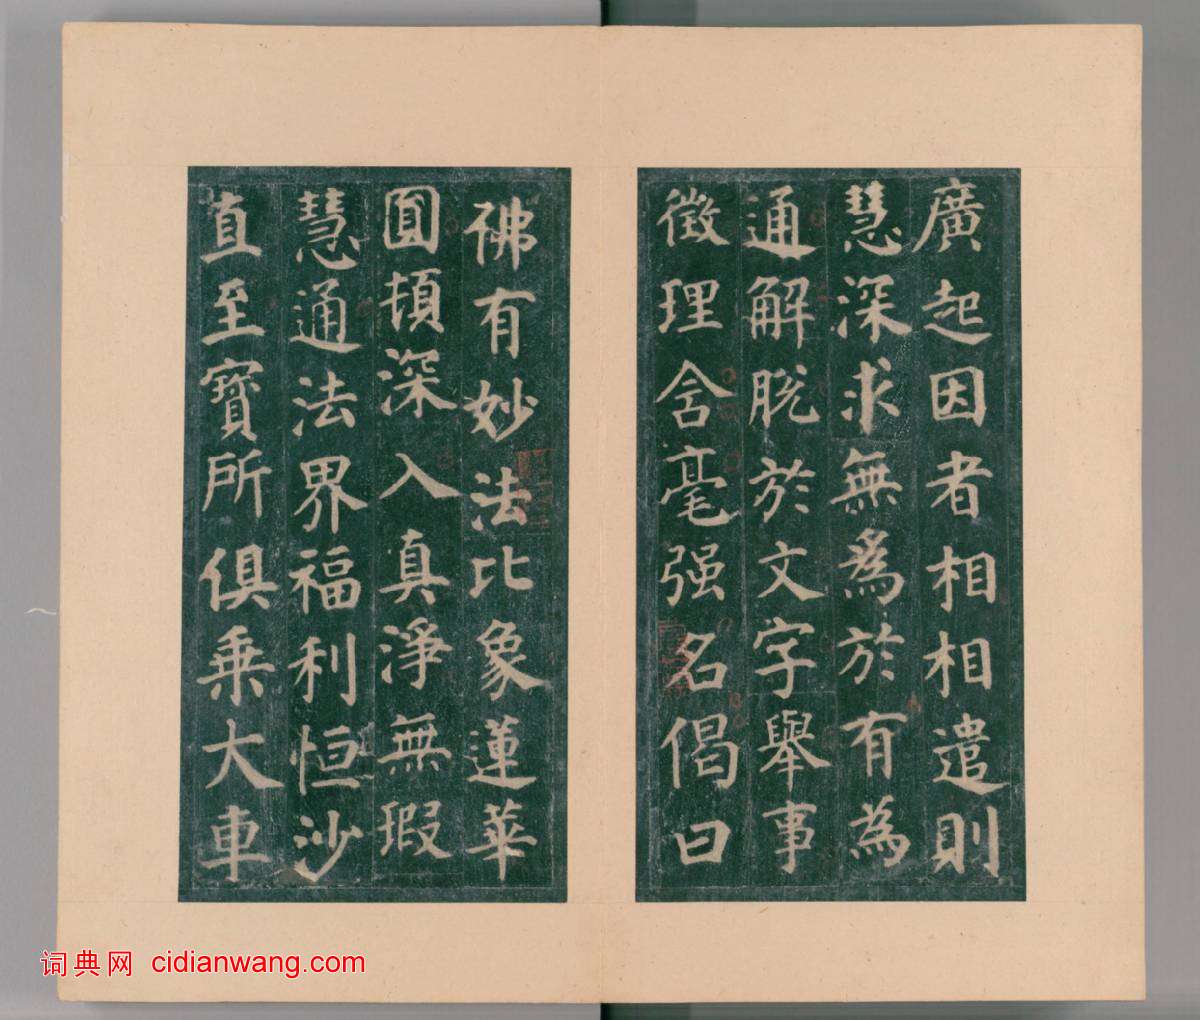 廣起因者相相遣則
慧深求無爲於有為
通解脫於文字舉事
徵理含毫强名偈曰
佛有妙法比象蓮華
圓頓深入真淨無瑕
慧通法界福利恒沙
直至寶所俱乘大車
词典网 cidianwang.com